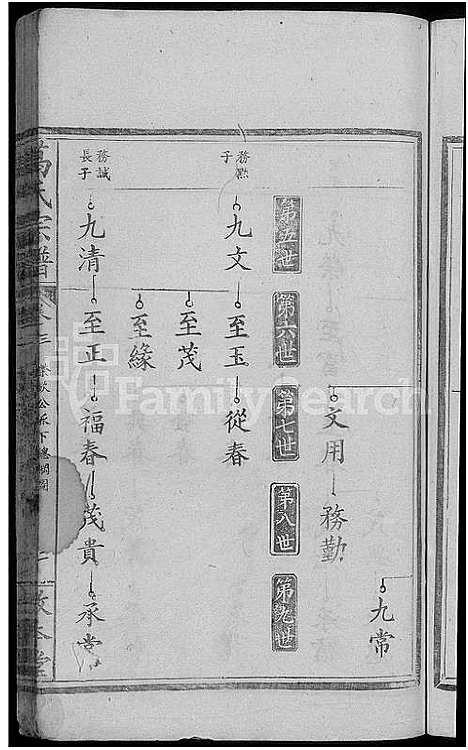 九常
文用 務勤
第五世 第六世 第七世 第八世 第九世
務默子 九文 至玉 從春
至茂
至緣
務誠長子 九清 至正 福春 茂貴 承常
萬氏宗譜
FamilySearch